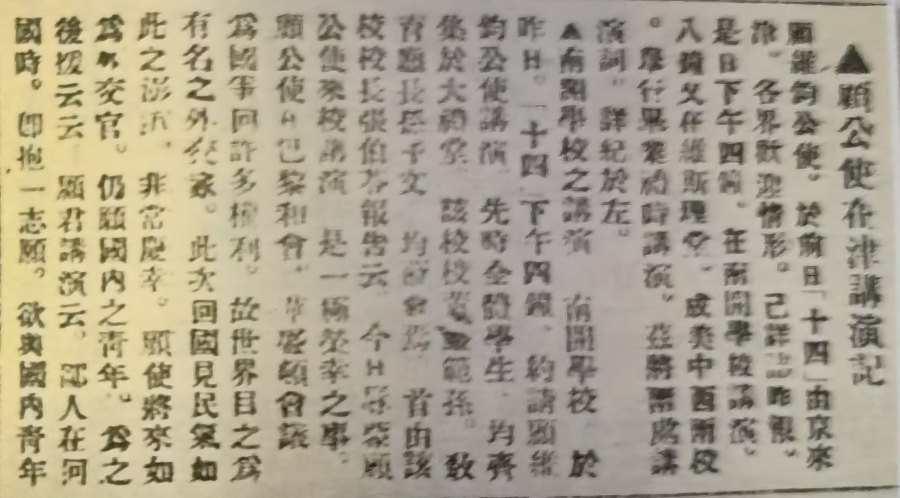 ▲顧公使在津講演記
顧維鈞公使。於前日「十四」由京來
津。各界歡迎情形。已詳誌昨報。
是日下午四鐘。在南開學校講演。
八鐘又在維斯理堂。成美中西兩校
。舉行畢業禮時講演。茲將兩處講
演詞。詳紀於左。
▲南開學校之講演 南開學校 於
昨日。「十四」下午四鐘。約請顧維
鈞公使講演 先時全體學生 均齊
集於大禮堂 該校校董 範孫。教
育廳長 子文 均蒞會焉 首由該
校校長張伯苓報告云 今日辱蒙顧
公使來校講演 是一極榮幸之事。
顧公使 巴黎和會 華盛頓會議
為國爭回許多權利。故世界目之為
有名之外交家。此次回國見民氣如
此之澎湃。非常慶幸。顧使將來如
為外交官。仍願國內之青年。為之
後援云云 顧君講演云。鄙人在河
國時。即抱一志願。欲與國內青年